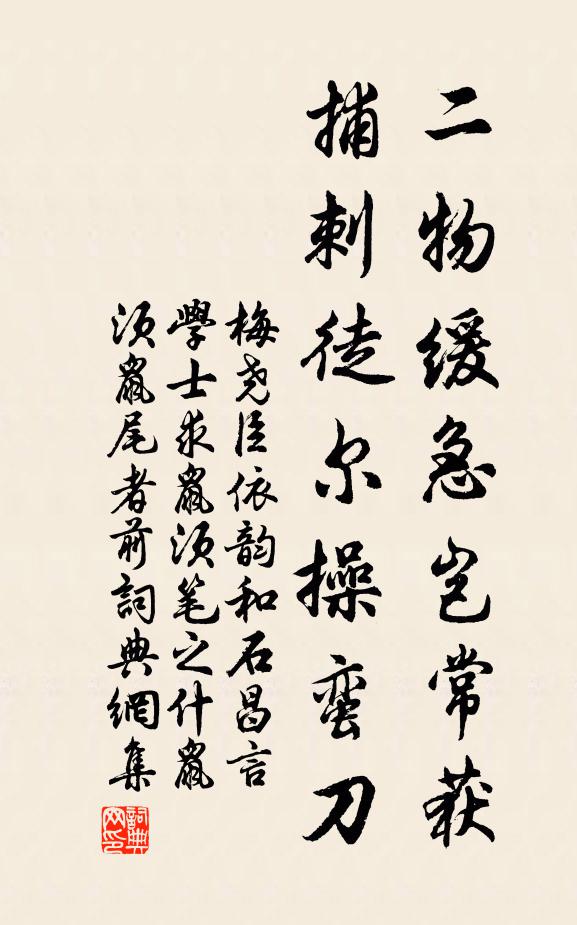 二物缓急岂常获
捕刺徒尔操蛮刀
梅尧臣依韵和石昌言
學士求鼠须笔之什鼠
须鼠尾者前詞典網集
詞典网印